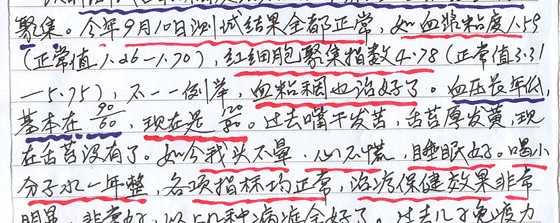 聚集。今年9月10日测试结果全都正常，如血浆粘度1.59
（正常值1.26—1.70），红细胞聚集指数4.78（正常值3.31
—5.75），不一一例举，血粘稠也治好了。血压长年低，
基本在90/60，现在是120/80。过去嘴干发苦，舌苔厚发黄，现
在舌苔没有了。如今我头不晕，心不慌，睡眠好。喝小
分子水一年整，各项指标均正常，治疗保健效果非常
明显，非常好，以上几种病症全好了。过去几了免疫力